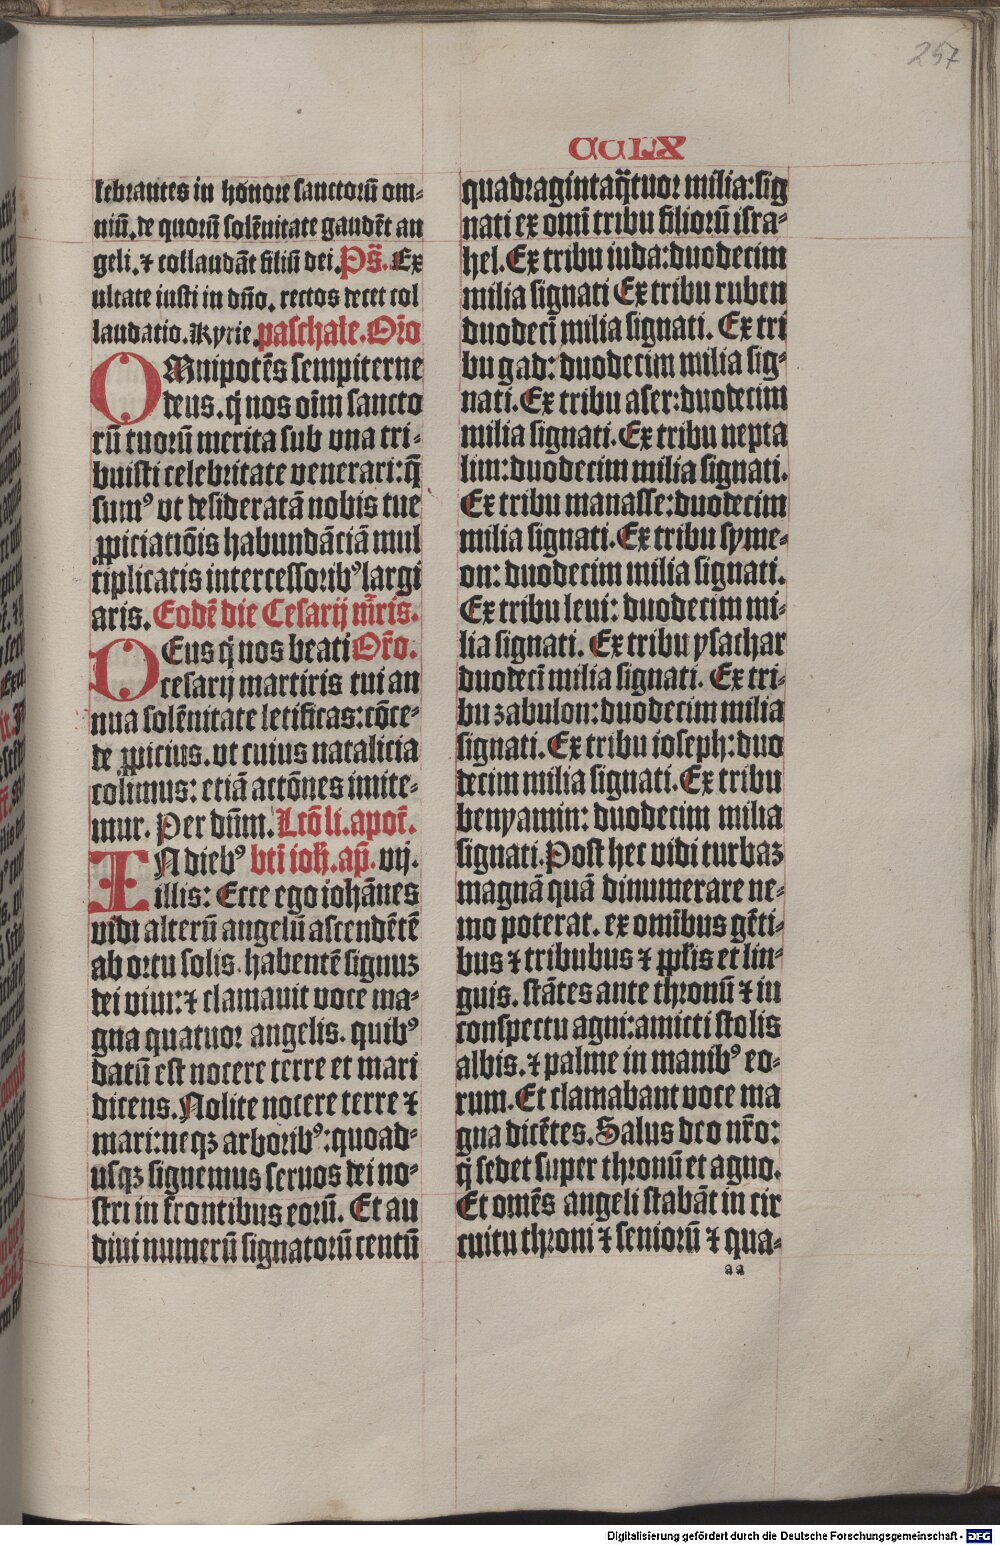 257
CCLX
lebrantes in honore sanctorū om⸗
niū. de quorū solēnitate gaudēt an
geli. ⁊ collaudāt filiū dei. Ps̄. Ex
ultate iusti in dn̄o. rectos decet col
laudatio. Kyrie. paschale. Oro̅
OMnipotēs sempiterne
deus. q̄ nos oīm sancto
rū tuorū merita sub vna tri⸗
buisti celebritate venerari: q̄
sumꝰ vt desideratā nobis tue
ꝓpiciatiōis habundāciā mul
tiplicatis intercessoribꝰ largi
aris. Eodē die Cesarij mr̄is.
DEus q̄ nos beati Oro̅.
cesarij martiris tui an
nua solēnitate letificas: cōce⸗
de ꝓpicius. vt cuius natalicia
colimus: etiā actōnes imite⸗
mur. Per dn̄m. Lcō li. apoc̄.
IN diebꝰ bti̅ ioh̄. ap̄. vij.
illis: Ecce ego iohānes
vidi alterū angelū ascendētē
ab ortu solis. habentē signuꝫ
dei viui: ⁊ clamauit voce ma⸗
gna quatuor angelis. quibꝰ
datū est nocere terre et mari
dicens. Nolite nocere terre ⁊
mari: neqꝫ arboribꝰ: quoad⸗
usqꝫ signemus seruos dei no⸗
stri in frontibus eorū. Et au
diui numerū signatorū centū
quadragintaq̄tuor milia: sig
nati ex omī tribu filiorū isra⸗
hel. Ex tribu iuda: duodecim
milia signati Ex tribu ruben
duodecī milia signati. Ex tri
bu gad: duodecim milia sig⸗
nati. Ex tribu aser: duodecim
milia signati. Ex tribu nepta
lim: duodecim milia signati.
Ex tribu manasse: duodecim
milia signati. Ex tribu syme⸗
on: duodecim milia signati.
Ex tribu leui: duodecim mi⸗
lia signati. Ex tribu ysachar
duodecī milia signati. Ex tri⸗
bu zabulon: duodecim milia
signati. Ex tribu ioseph: duo
decim milia signati. Ex tribu
benyamin: duodecim milia
signati. Post hec vidi turbaꝫ
magnā quā dinumerare ne⸗
mo poterat. ex omībus gēti⸗
bus ⁊ tribubus ⁊ pp̄lis et lin⸗
guis. stātes ante thronū ⁊ in
conspectu agni: amicti stolis
albis. ⁊ palme in manibꝰ eo⸗
rum. Et clamabant voce ma
gna dicētes. Salus deo nr̄o:
q̄ sedet super thronū et agno.
Et omēs angeli stabāt in cir
cuitu throni ⁊ seniorū ⁊ qua⸗
aa
Digitalisierung gefördert durch die Deutsche Forschungsgemeinschaft - DFG